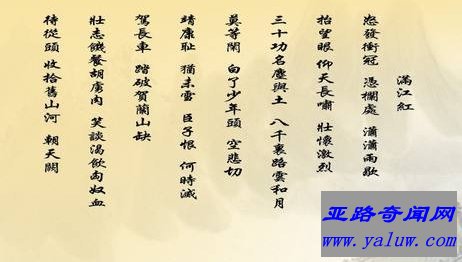 滿江紅
怒發衝冠 憑欄處 瀟瀟雨歇
抬望眼 仰天長嘯 壯懷激烈
三十功名塵與土 八千裏路雲和月
莫等閑 白了少年頭 空悲切
靖康恥 猶未雪 臣子恨 何時滅
駕長車 踏破賀蘭山缺
壯志饑餐胡虜肉 笑談渴飲匈奴血
待從頭 收拾舊山河 朝天闕
亚路奇闻网
www.yaluw.com